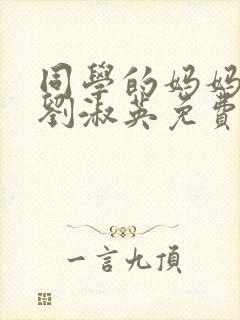 同學的媽媽
劉淑英免費
一言九頂